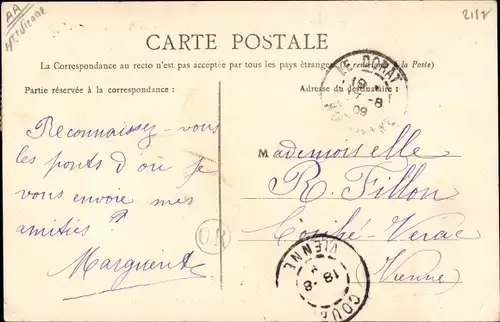 AA
Hte Vienne
2187
CARTE POSTALE
La Correspondance au recto n'est pas acceptée par tous les pays étrangers (à la Poste)
Partie réservée à la correspondance :
Adresse du destinataire :
LE DORAT
19
17 - 8
09
Reconnaissez-vous
les ponts d'où je
vous envoie mes
amitiés ?
Marguerite
Mademoiselle
R. Fillon
Couhé-Vérac
(Vienne)
OR
VIENNE
18 - 8
COUH